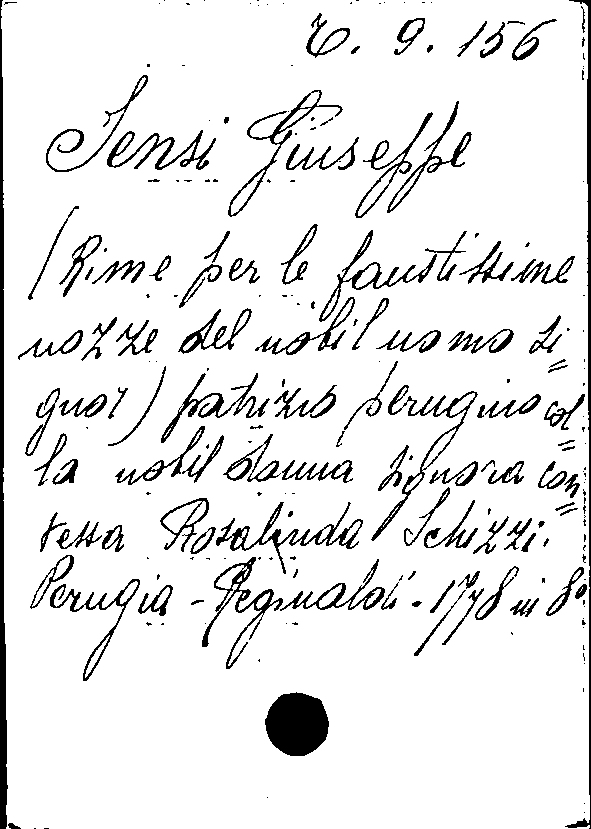 C. 9. 156
Sensi Giuseppe
(Rime per le faustissime
nozze del nobil uomo si=
gnor) patrizio perugino col=
la nobil donna signora con=
tessa Rosalinda Schizzi.
Perugia - Reginaldi - 1778 in 8°